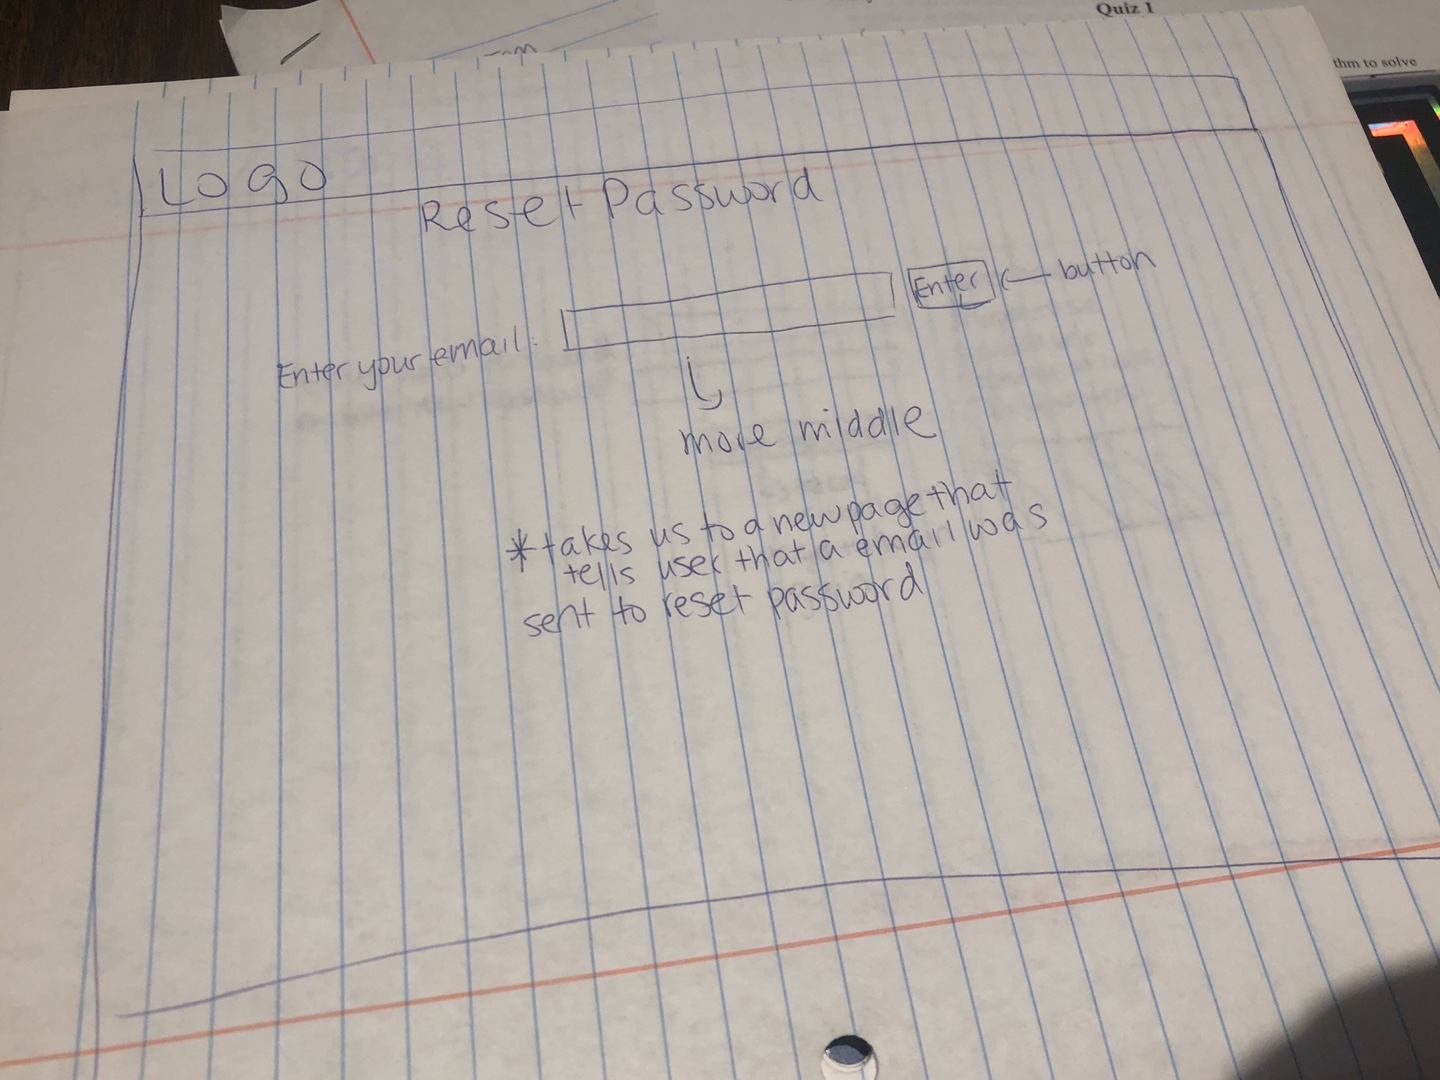 Quiz 1
thm to solve
Logo
Reset Password
Enter your email: Enter <— button
more middle
*takes us to a new page that
tells user that a email was
sent to reset password